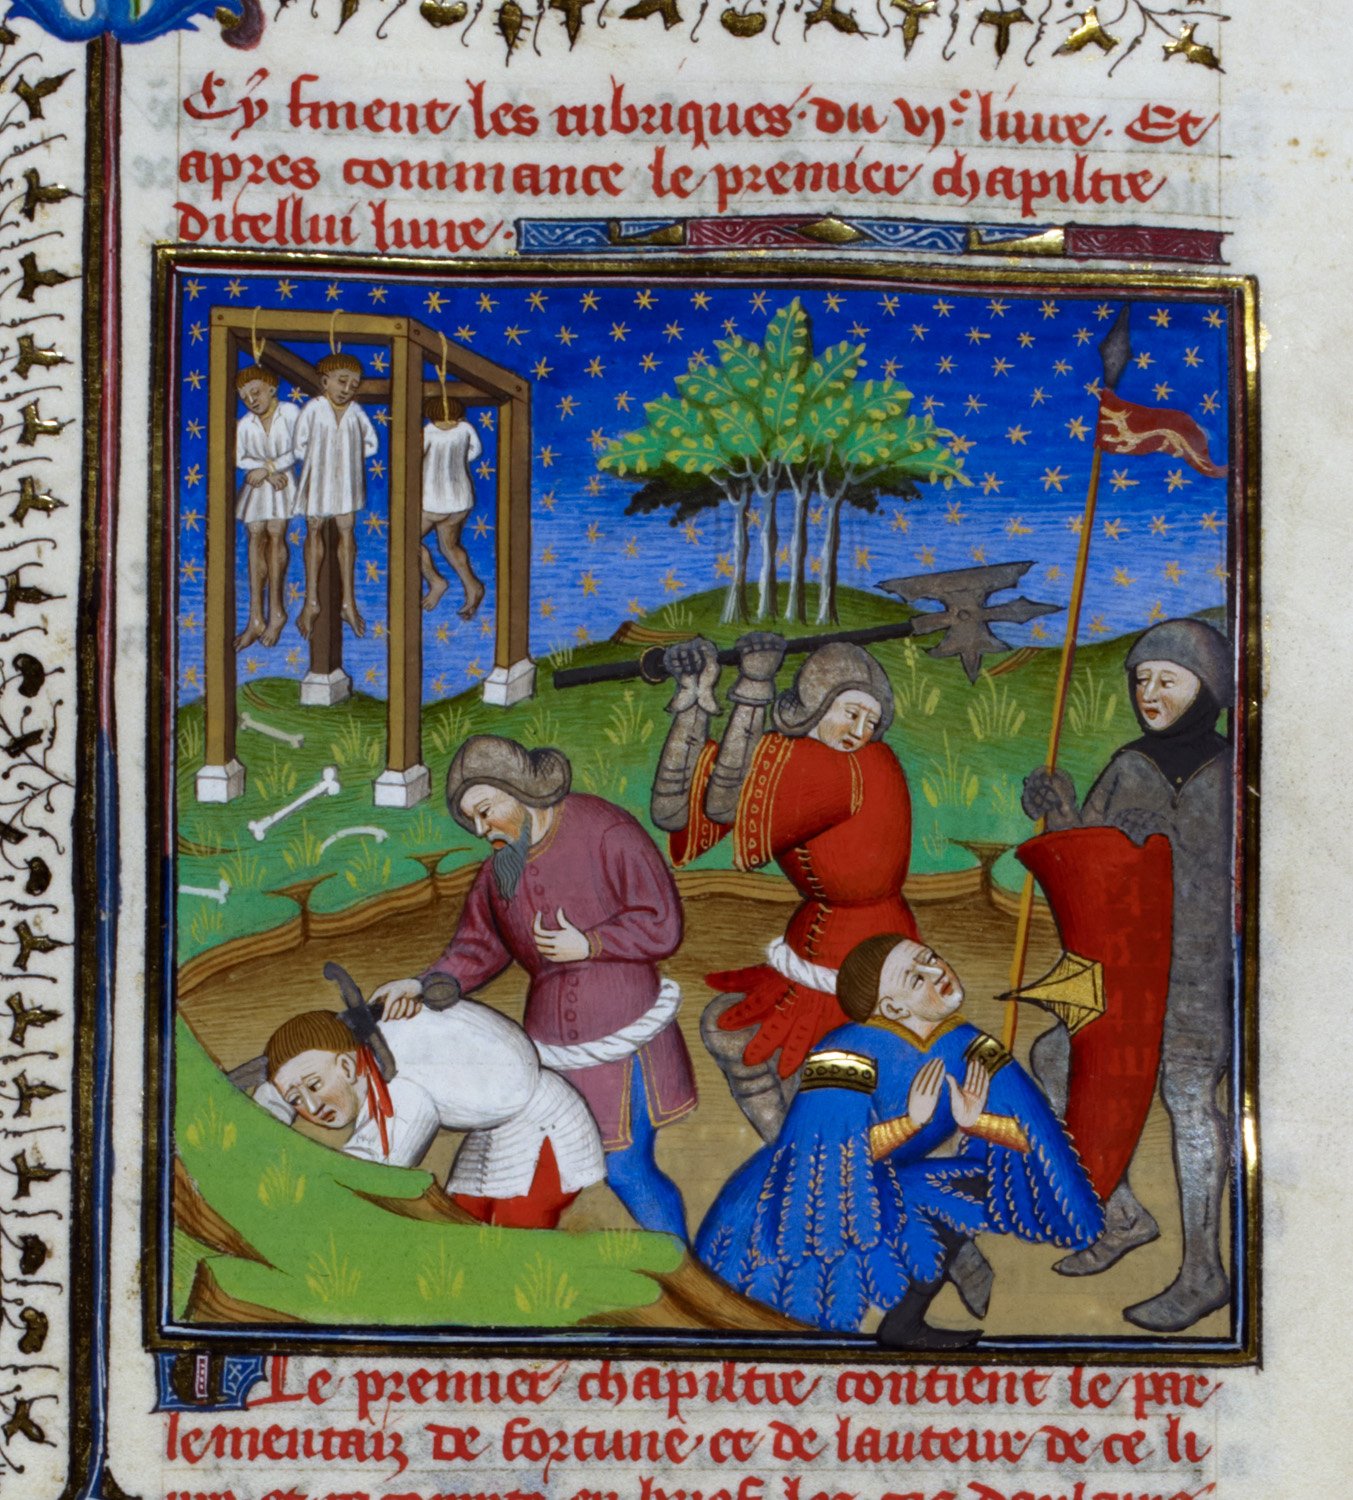 Cy finent les rubriques du vje livre. Et
apres commance le premier chapiltre
dicellui livre.
Le premier chapiltre contient le par
lement de fortune et de lauteur de ce li
vre et